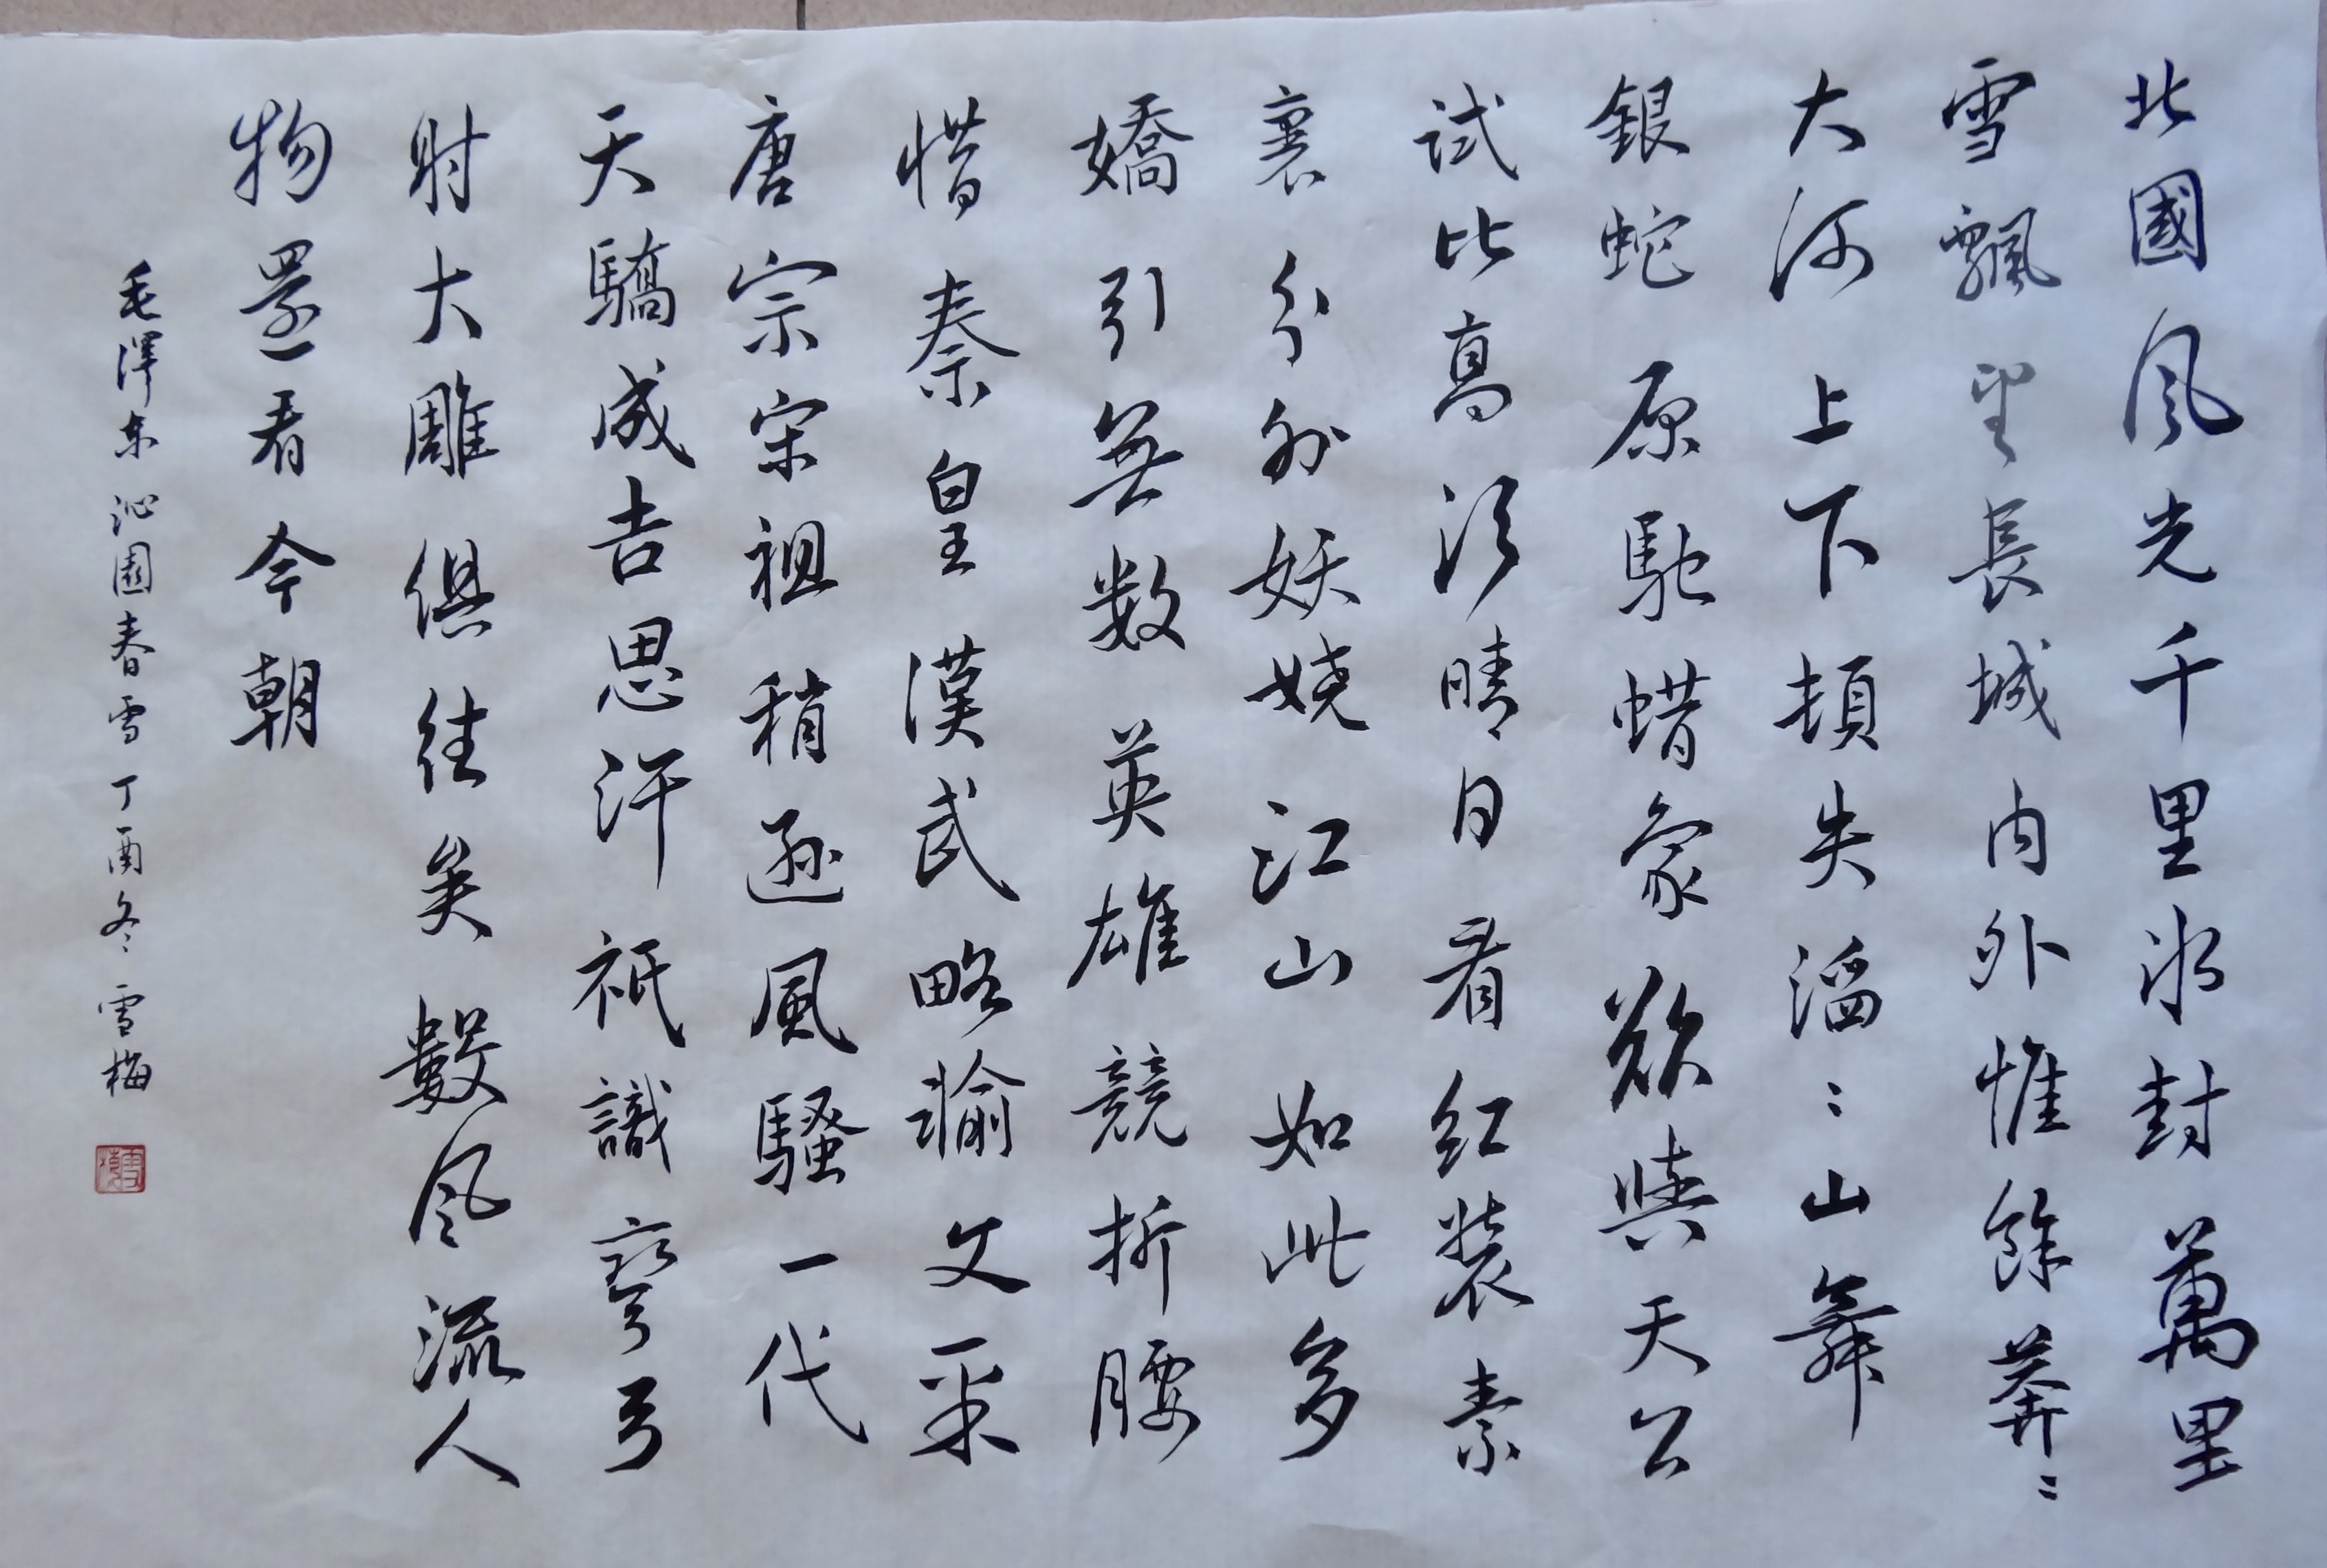 北國風光千里冰封萬里
雪飄望長城内外惟餘莽〻
大河上下頓失滔〻山舞
銀蛇原馳蜡象欲與天公
試比高須晴日看红裝素
裹分外妖娆江山如此多
嬌引無数英雄競折腰
惜秦皇漢武略輸文采
唐宗宋祖稍遜風騷一代
天驕成吉思汗祇識彎弓
射大雕俱往矣數風流人
物還看今朝
毛澤东沁園春雪丁酉冬雪梅